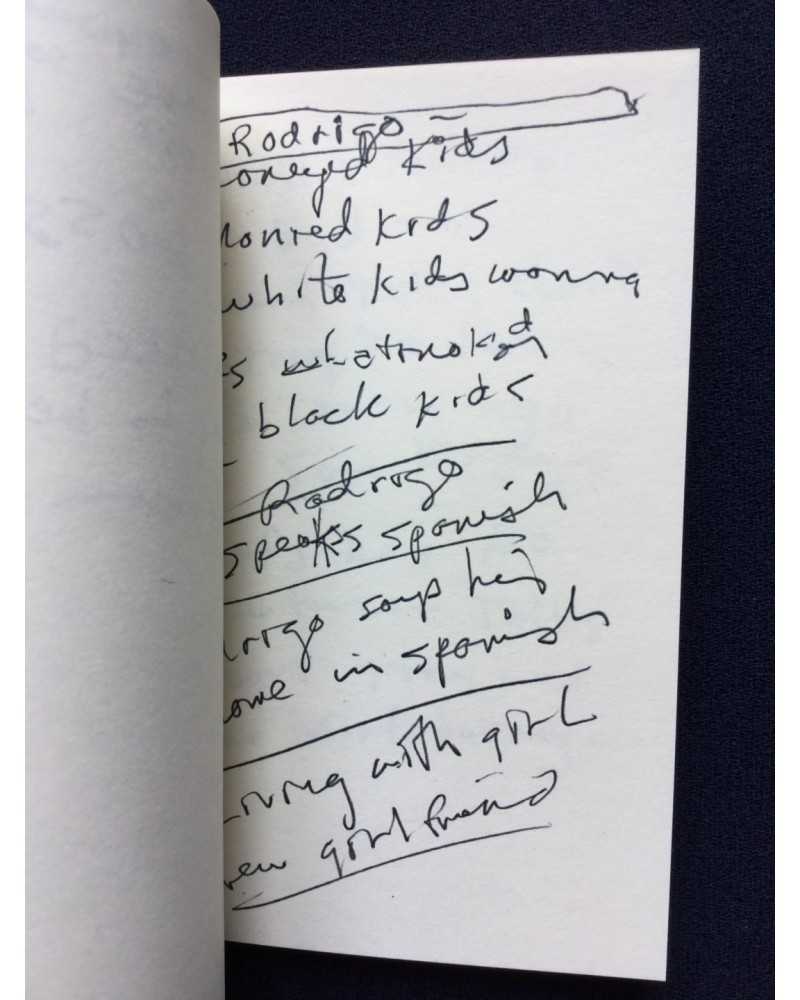 Rodrigo –
oneyed kids
monied kids
white kids wanna
black kids
Rodrigo
speaks spanish
drigo says his
ome in spanish
Living with girl
new girlfriend